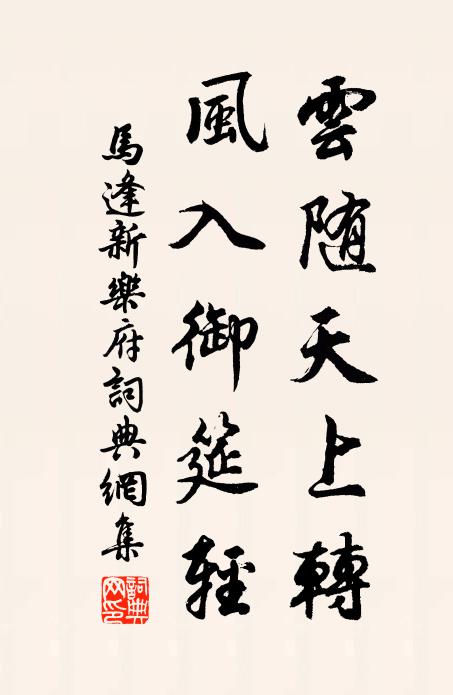 雲随天上轉
風入御筵輕
馬逢新樂府詞典網集
詞典网印